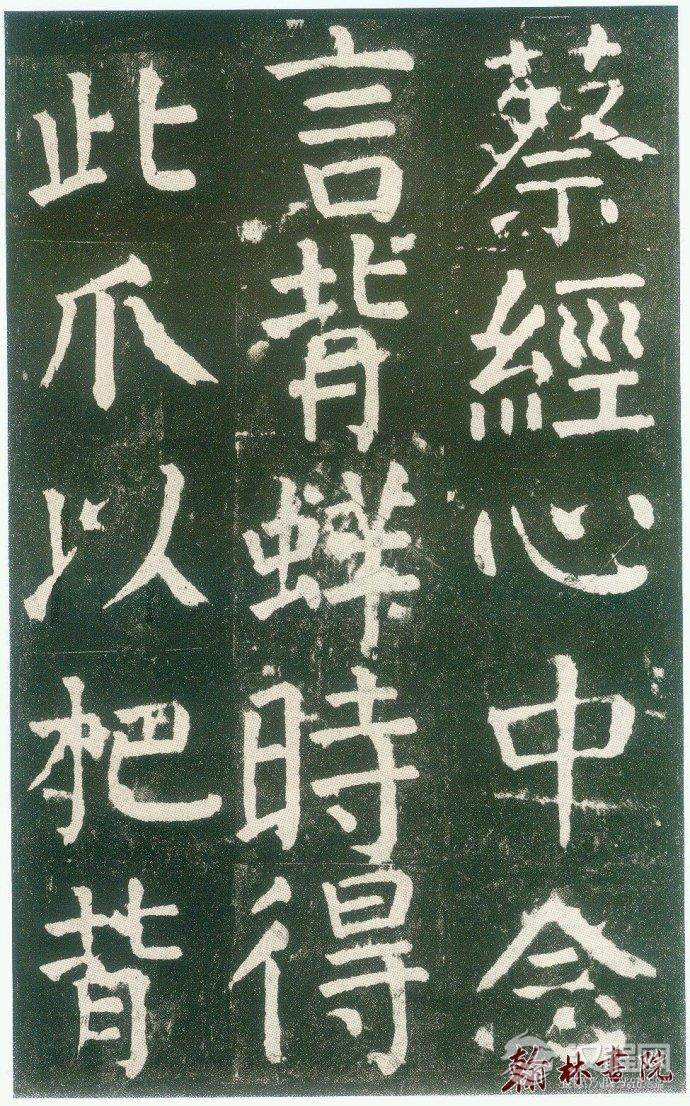 蔡經心中念
言背蛘時得
此爪以杷背
翰林書院